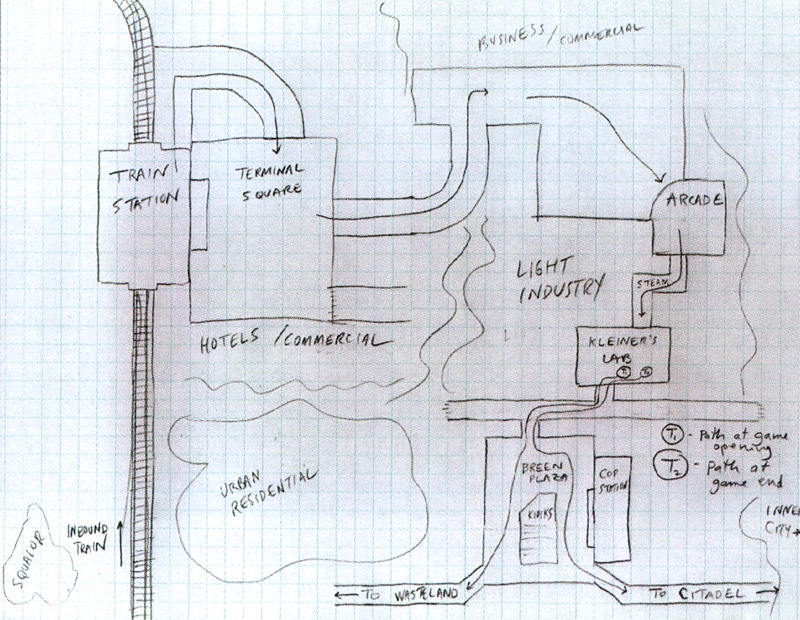 BUSINESS/COMMERCIAL
TRAIN
STATION
TERMINAL
SQUARE
ARCADE
LIGHT
INDUSTRY
STEAM
HOTELS/COMMERCIAL
KLEINER'S
LAB
T1 T2
T1 - Path at game
opening
T2 - Path at
game end
URBAN
RESIDENTIAL
BREEN
PLAZA
COP
STATION
KIOSKS
INNER
CITY →
INBOUND
TRAIN
SQUALOR
← TO WASTELAND
TO CITADEL →